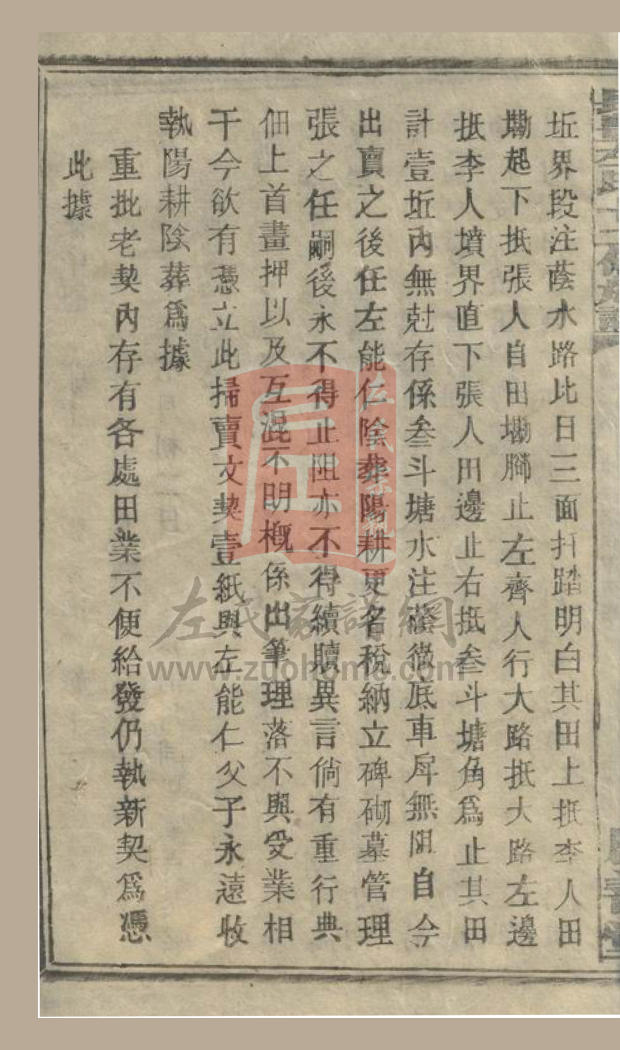 坵界段注蔭水路比日三面扞踏明白其田上抵李人田
墈起下抵張人自田墈脚止左齊人行大路抵大路左邊
抵李人墳界直下張人田邊止右抵叁斗塘角爲止其田
計壹坵內無尅存係叁斗塘水注蔭徹底車戽無阻自今
出賣之後任左能仁陰葬陽耕更名稅納立碑砌墓管理
張之任嗣後永不得止阻亦不得續贖異言倘有重行典
佃上首畫押以及互混不明概係出筆理落不與受業相
干今欲有憑立此掃賣文契壹紙與左能仁父子永遠收
執陽耕陰葬爲據
重批老契內存有各處田業不便給發仍執新契爲憑
此據
左氏家譜網
www.zuohome.com